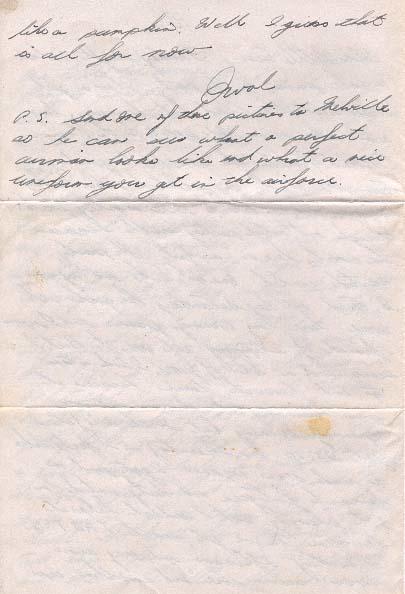 like a pumpkin. Well I guess that
is all for now
Orval
P.S. Send one of these pictures to Melville
so he can see what a perfect
airman looks like and what a nice
uniform you get in the airforce.